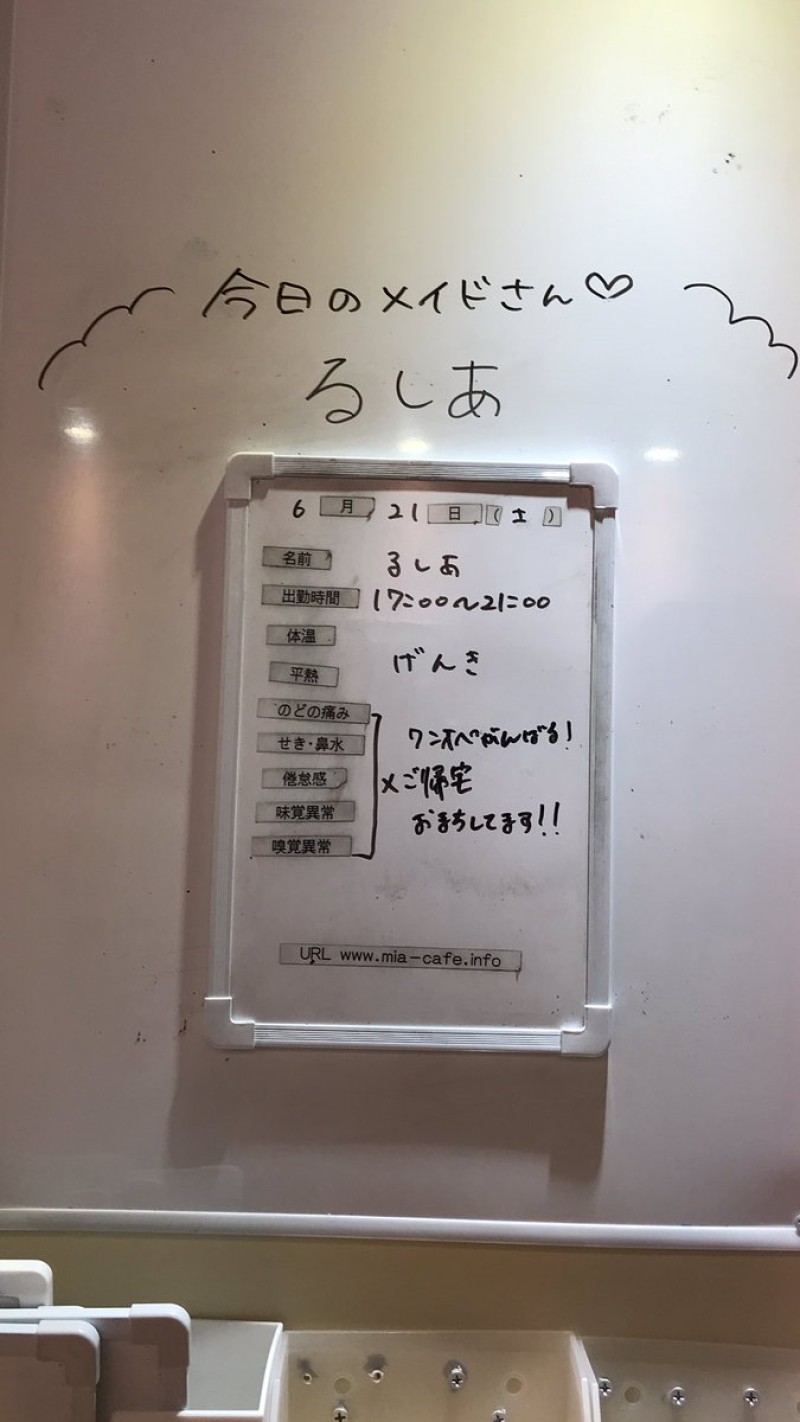 今日のメイドさん♡
るしあ
6月21日(土)
名前 るしあ
出勤時間 17:00〜21:00
体温
げんき
平熱
のどの痛み
ワンオペがんばる!
せき・鼻水
倦怠感 × ご帰宅
味覚異常 おまちしてます!!
嗅覚異常
URL www.mia-cafe.info